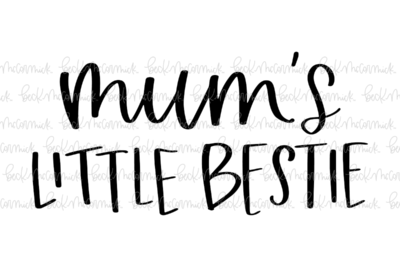 mum's
LITTLE BESTIE